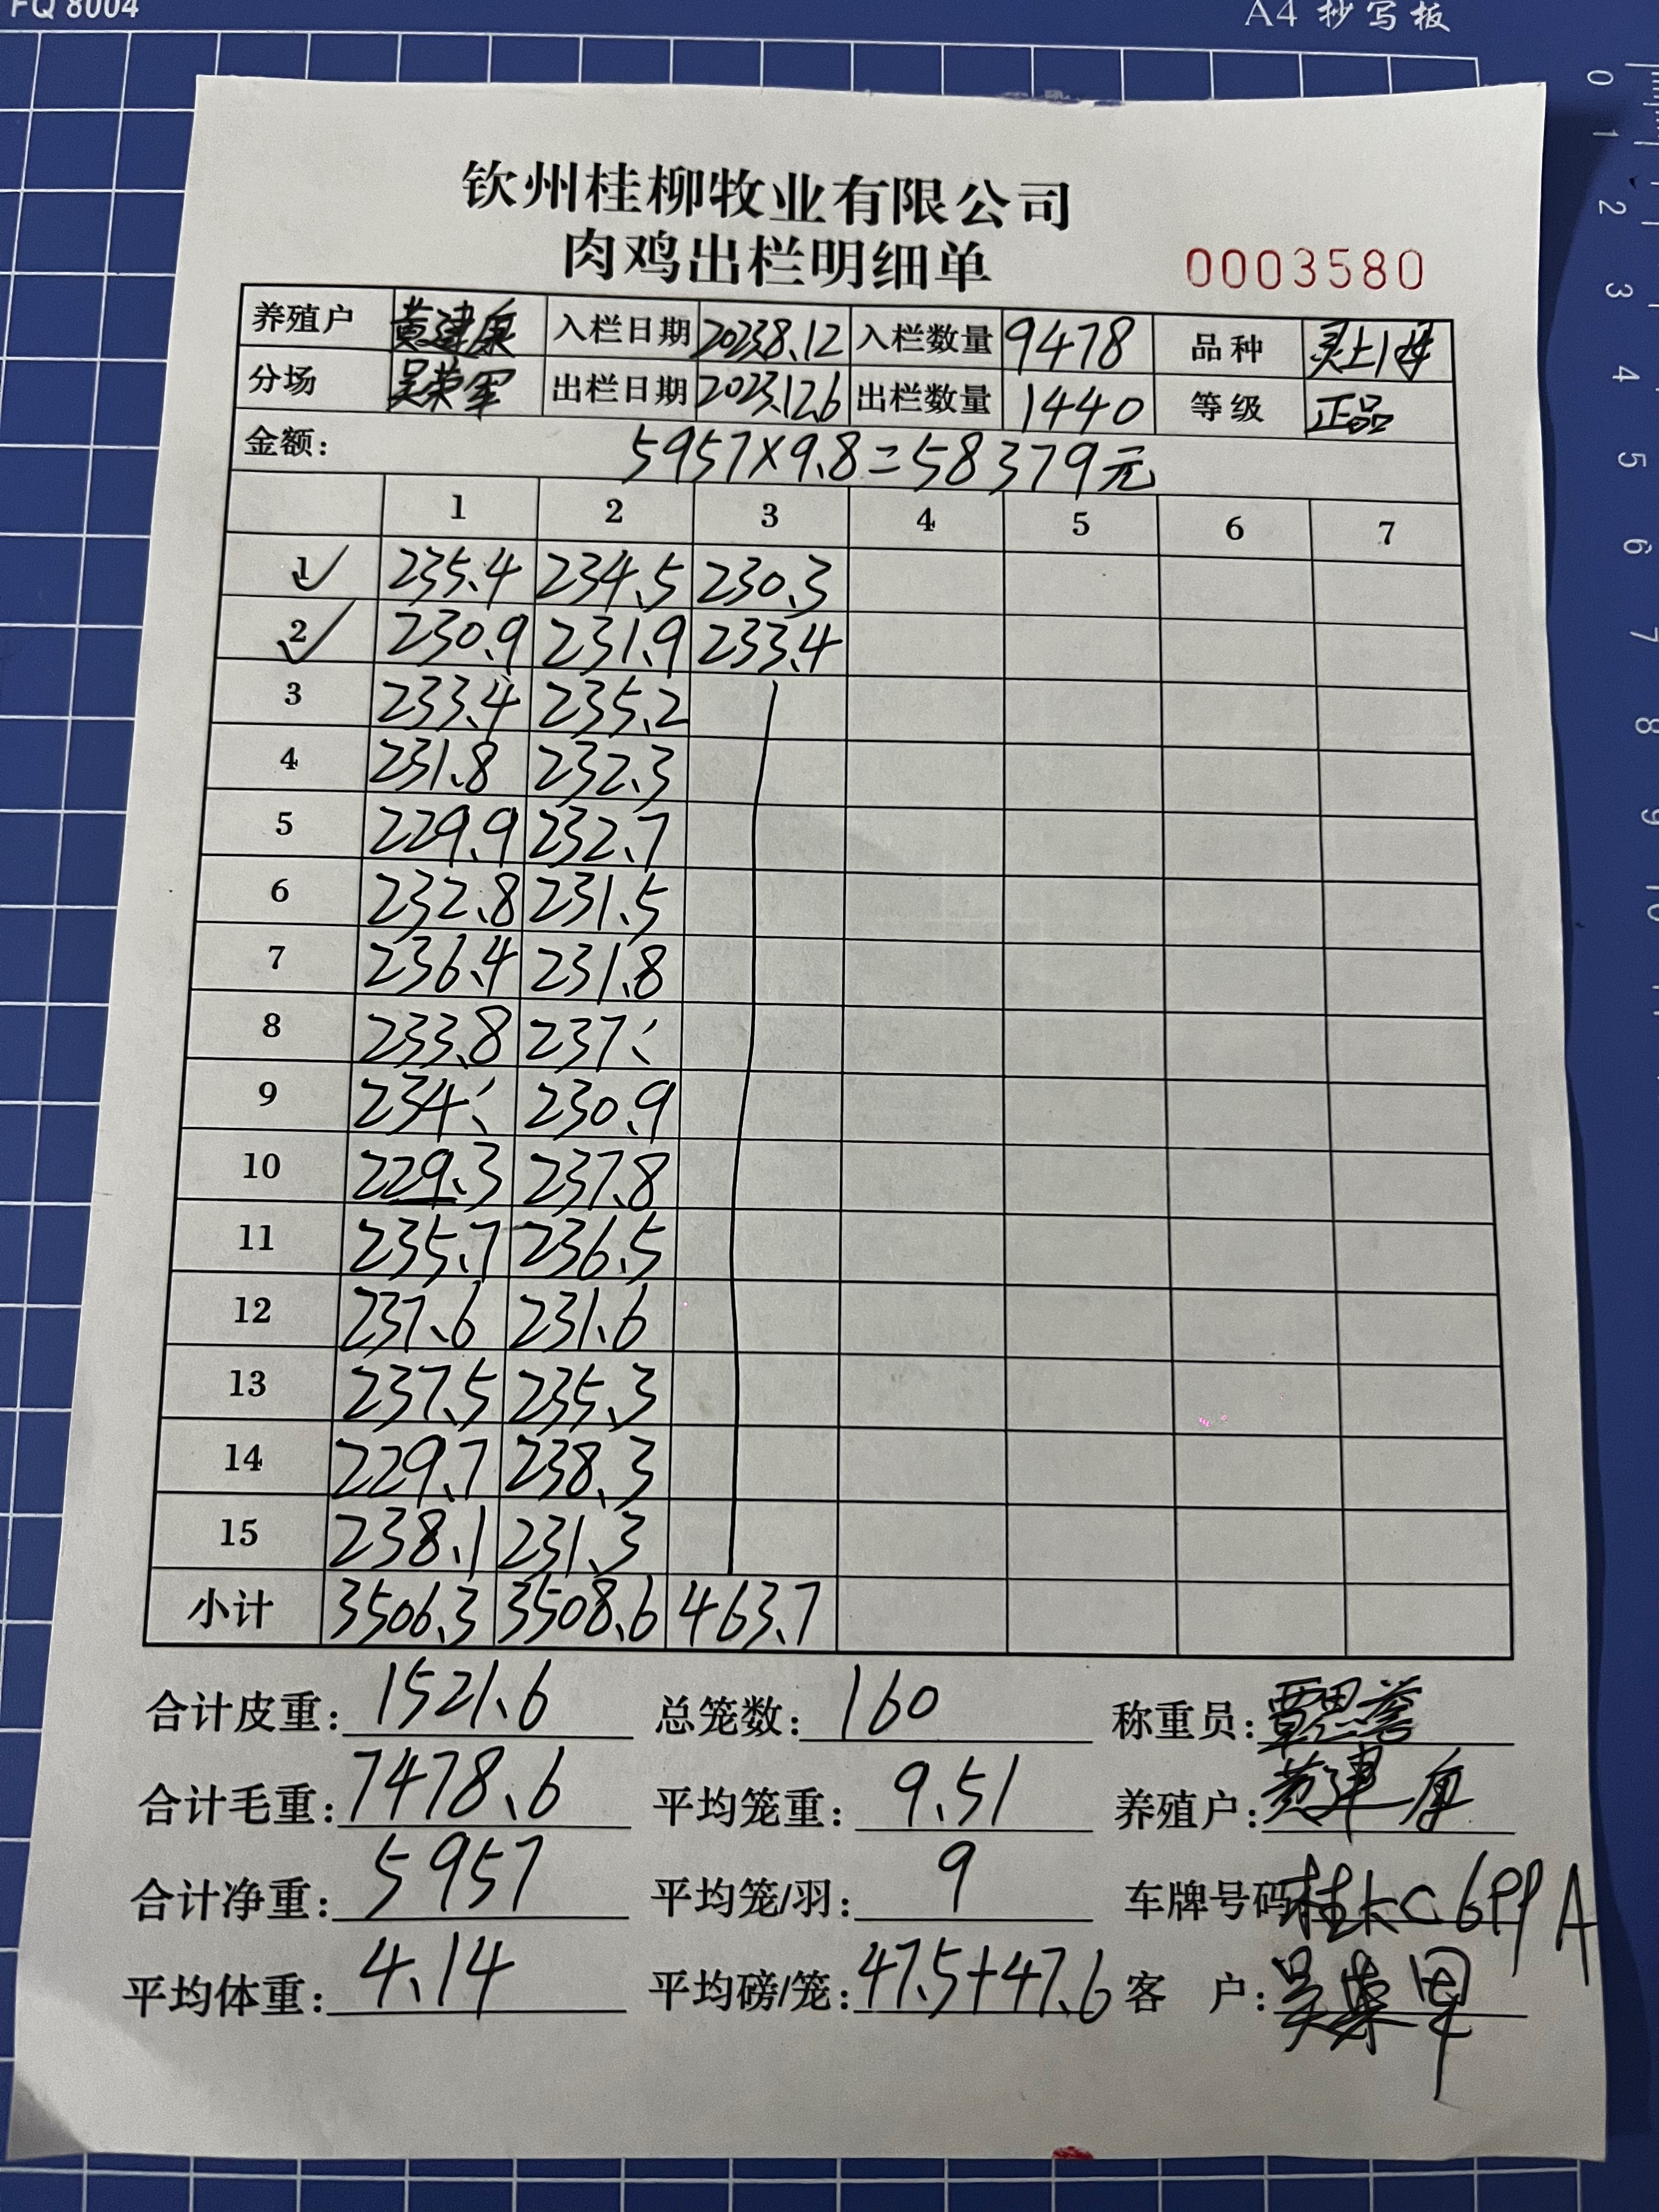 FQ 8004
A4 抄写板
钦州桂柳牧业有限公司
肉鸡出栏明细单
0003580
养殖户 黄建康 入栏日期 2023.8.12 入栏数量 9478 品种 灵上1母
分场 吴荣军 出栏日期 2023.12.6 出栏数量 1440 等级 正品
金额: 5957×9.8=58379元
1 2 3 4 5 6 7
1✓ 235.4 234.5 230.3
2✓ 230.9 231.9 233.4
3 233.4 235.2
4 231.8 232.3
5 229.9 232.7
6 232.8 231.5
7 236.4 231.8
8 233.8 237.
9 234. 230.9
10 229.3 237.8
11 235.7 236.5
12 237.6 231.6
13 237.5 235.3
14 229.7 238.3
15 238.1 231.3
小计 3506.3 3508.6 463.7
合计皮重: 1521.6 总笼数: 160 称重员:
合计毛重: 7478.6 平均笼重: 9.51 养殖户: 黄建康
合计净重: 5957 平均笼/羽: 9 车牌号码 桂KC6PPA
平均体重: 4.14 平均磅/笼: 47.5+47.6 客 户: 吴荣军
0
1
2
3
4
5
6
7
8
9
10